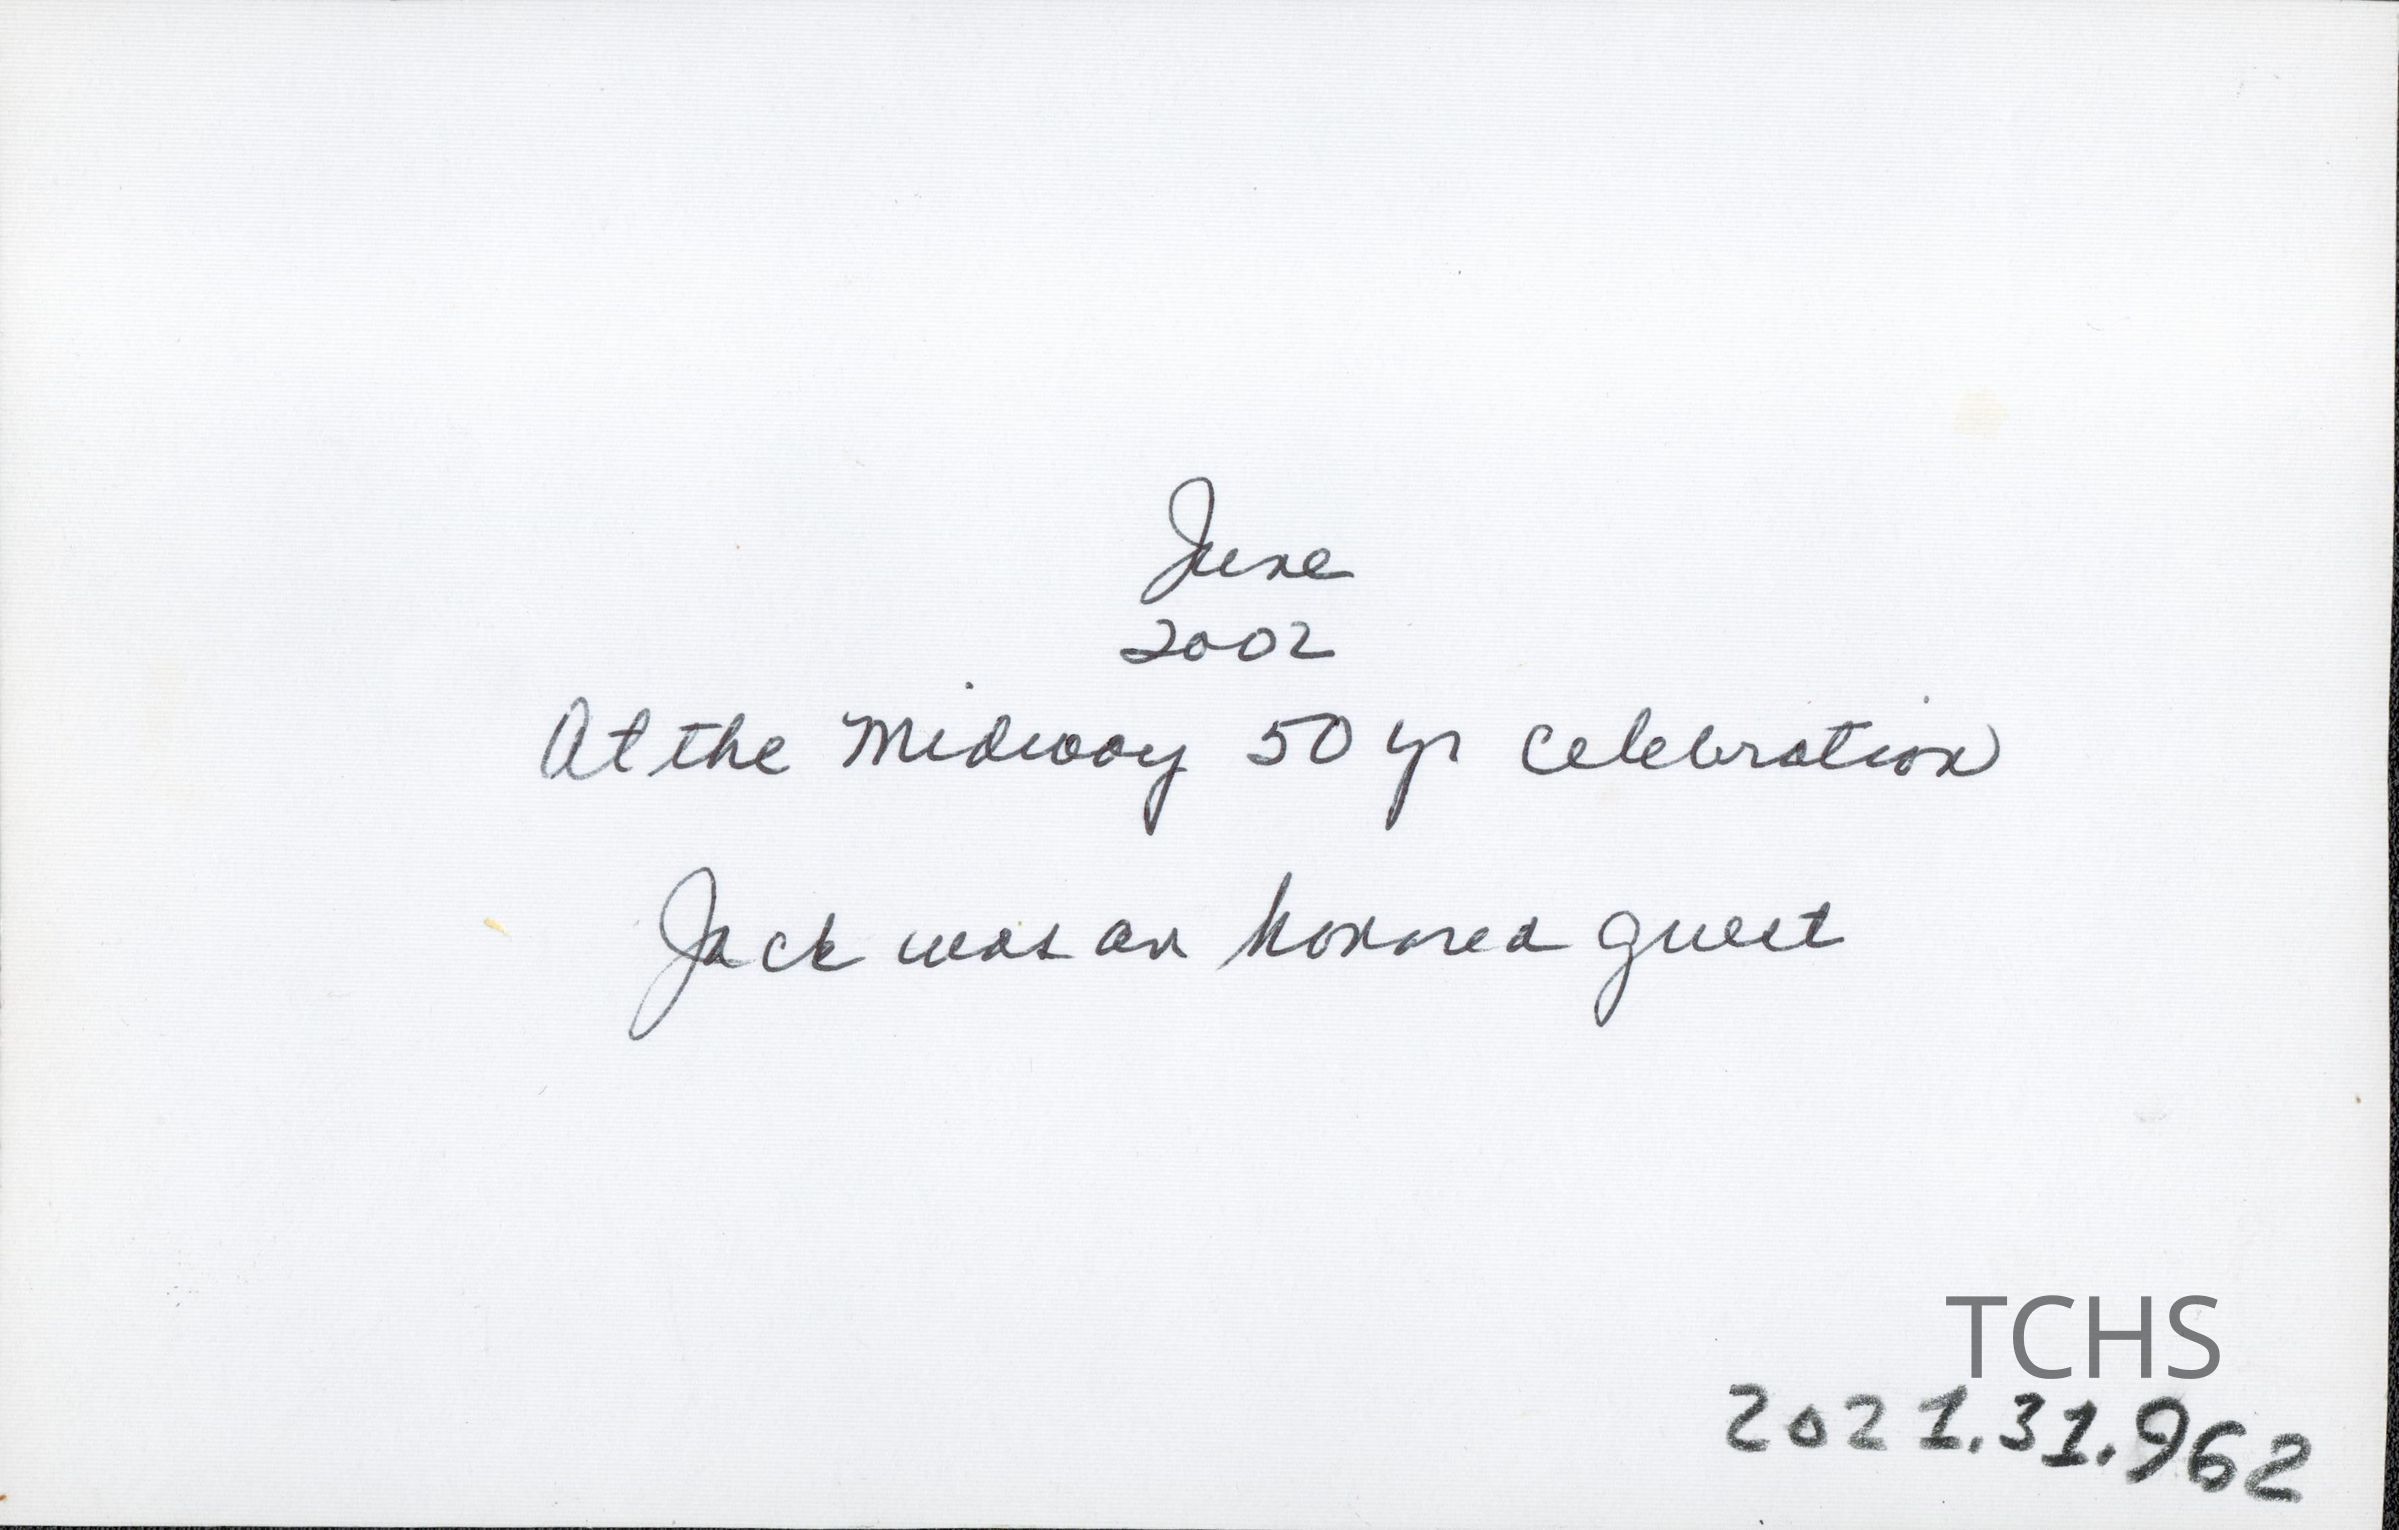 June
2002
At the Midway 50 yr celebration
Jack was an honored guest
TCHS
2021.31.962